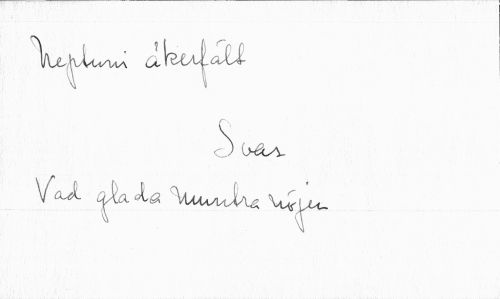 Neptuni åkerfält
Svar
Vad glada muntra nöjen